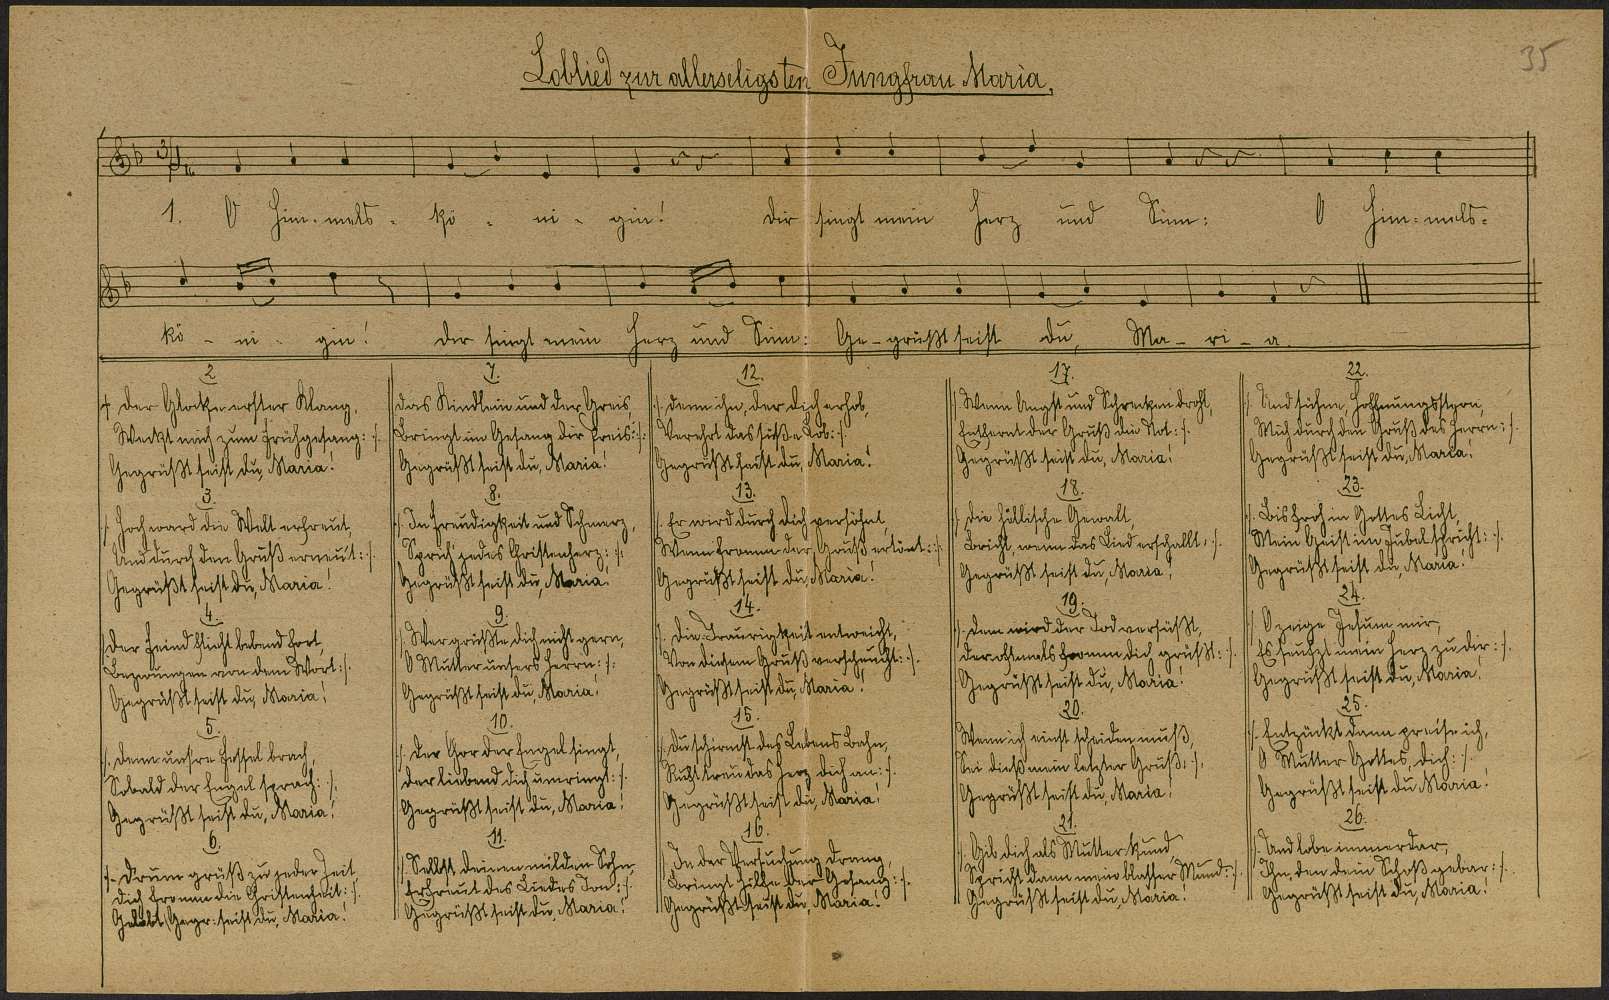 35
Loblied zur allerseligsten Jungfrau Maria.
1. O Him-mels- kö - ni - gin! Dir singt mein Herz und Sinn: O Him-mels-
kö - ni - gin! Dir singt mein Herz und Sinn: Ge-grüßt seist du, Ma - ri - a.
2
/: Der Glocke erster Klang,
Weckt mich zum Frühgesang: :/:
Gegrüßt seist du, Maria!
3.
/: Hoch ward die Welt erfreut,
Und durch den Gruß erneut: :/:
Gegrüßt seist du, Maria!
4.
/: Der Feind flieht bebend fort,
Bezwungen von dem Wort: :/:
Gegrüßt seist du, Maria!
5.
/: Denn unsre Fessel brach,
Sobald der Engel sprach: :/:
Gegrüßt seist du, Maria!
6.
/: Drum grüß zu jeder Zeit
Dich fromm die Christenheit: :/:
Gegr: seist du, Maria!
7.
Das Kindlein und der Greis,
Bringt im Gesang dir Preis: :/:
Gegrüßt seist du, Maria!
8.
/: In Freudigkeit und Schmerz,
Sprich jedes Christenherz: :/:
Gegrüßt seist du, Maria.
9.
/: Wer grüßte dich nicht gern,
O Mutter unsers Herrn: :/:
Gegrüßt seist du, Maria!
10.
/: Der Chor der Engel singt,
Der liebend dich umringt: :/:
Gegrüßt seist du, Maria!
11.
/: Selbst deinen milden Sohn,
Erfreut des Liedes Ton: :/:
Gegrüßt seist du, Maria!
12.
/: Denn ihn, der dich erhob,
Verehrt das süße Lob: :/:
Gegrüßt seist du, Maria!
13.
/: Er wird durch dich versöhnt,
Wenn fromm der Gruß ertönt: :/:
Gegrüßt seist du, Maria!
14.
/: Die Traurigkeit entweicht,
Von diesem Gruß verscheucht: :/:
Gegrüßt seist du, Maria!
15.
/: Du schirmst des Lebens Bahn,
Ruft treu das Herz dich an: :/:
Gegrüßt seist du, Maria!
16.
/: In der Versuchung Drang,
Bringt Hilfe der Gesang: :/:
Gegrüßt seist du, Maria!
17.
/: Wenn Angst und Schrecken droht,
Entfernt der Gruß die Not: :/:
Gegrüßt seist du, Maria!
18.
/: Die höllische Gewalt,
Bricht, wenn das Lied erschallt, :/:
Gegrüßt seist du, Maria!
19.
/: Dem wird der Tod versüßt,
Der oftmals fromm dich grüßt: :/:
Gegrüßt seist du, Maria!
20.
Wenn ich einst scheiden muß,
Sei dieß mein letzter Gruß: :/:
Gegrüßt seist du, Maria!
21.
/: Gib dich als Mutter kund,
Spricht dann mein blasser Mund: :/:
Gegrüßt seist du, Maria!
22.
/: Und sühne, Hoffnungsstern,
Mich durch den Gruß des Herrn: :/:
Gegrüßt seist du, Maria!
23.
/: Bis froh in Gottes Licht,
Mein Geist im Jubel spricht: :/:
Gegrüßt seist du, Maria!
24.
/: O zeige Jesum mir,
Es seufzt mein Herz zu dir: :/:
Gegrüßt seist du, Maria!
25.
/: Entzückt dann preise ich,
O Mutter Gottes, dich: :/:
Gegrüßt seist du, Maria!
26.
/: Und lobe immerdar,
Ihn, den dein Schoß gebar: :/:
Gegrüßt seist du, Maria!